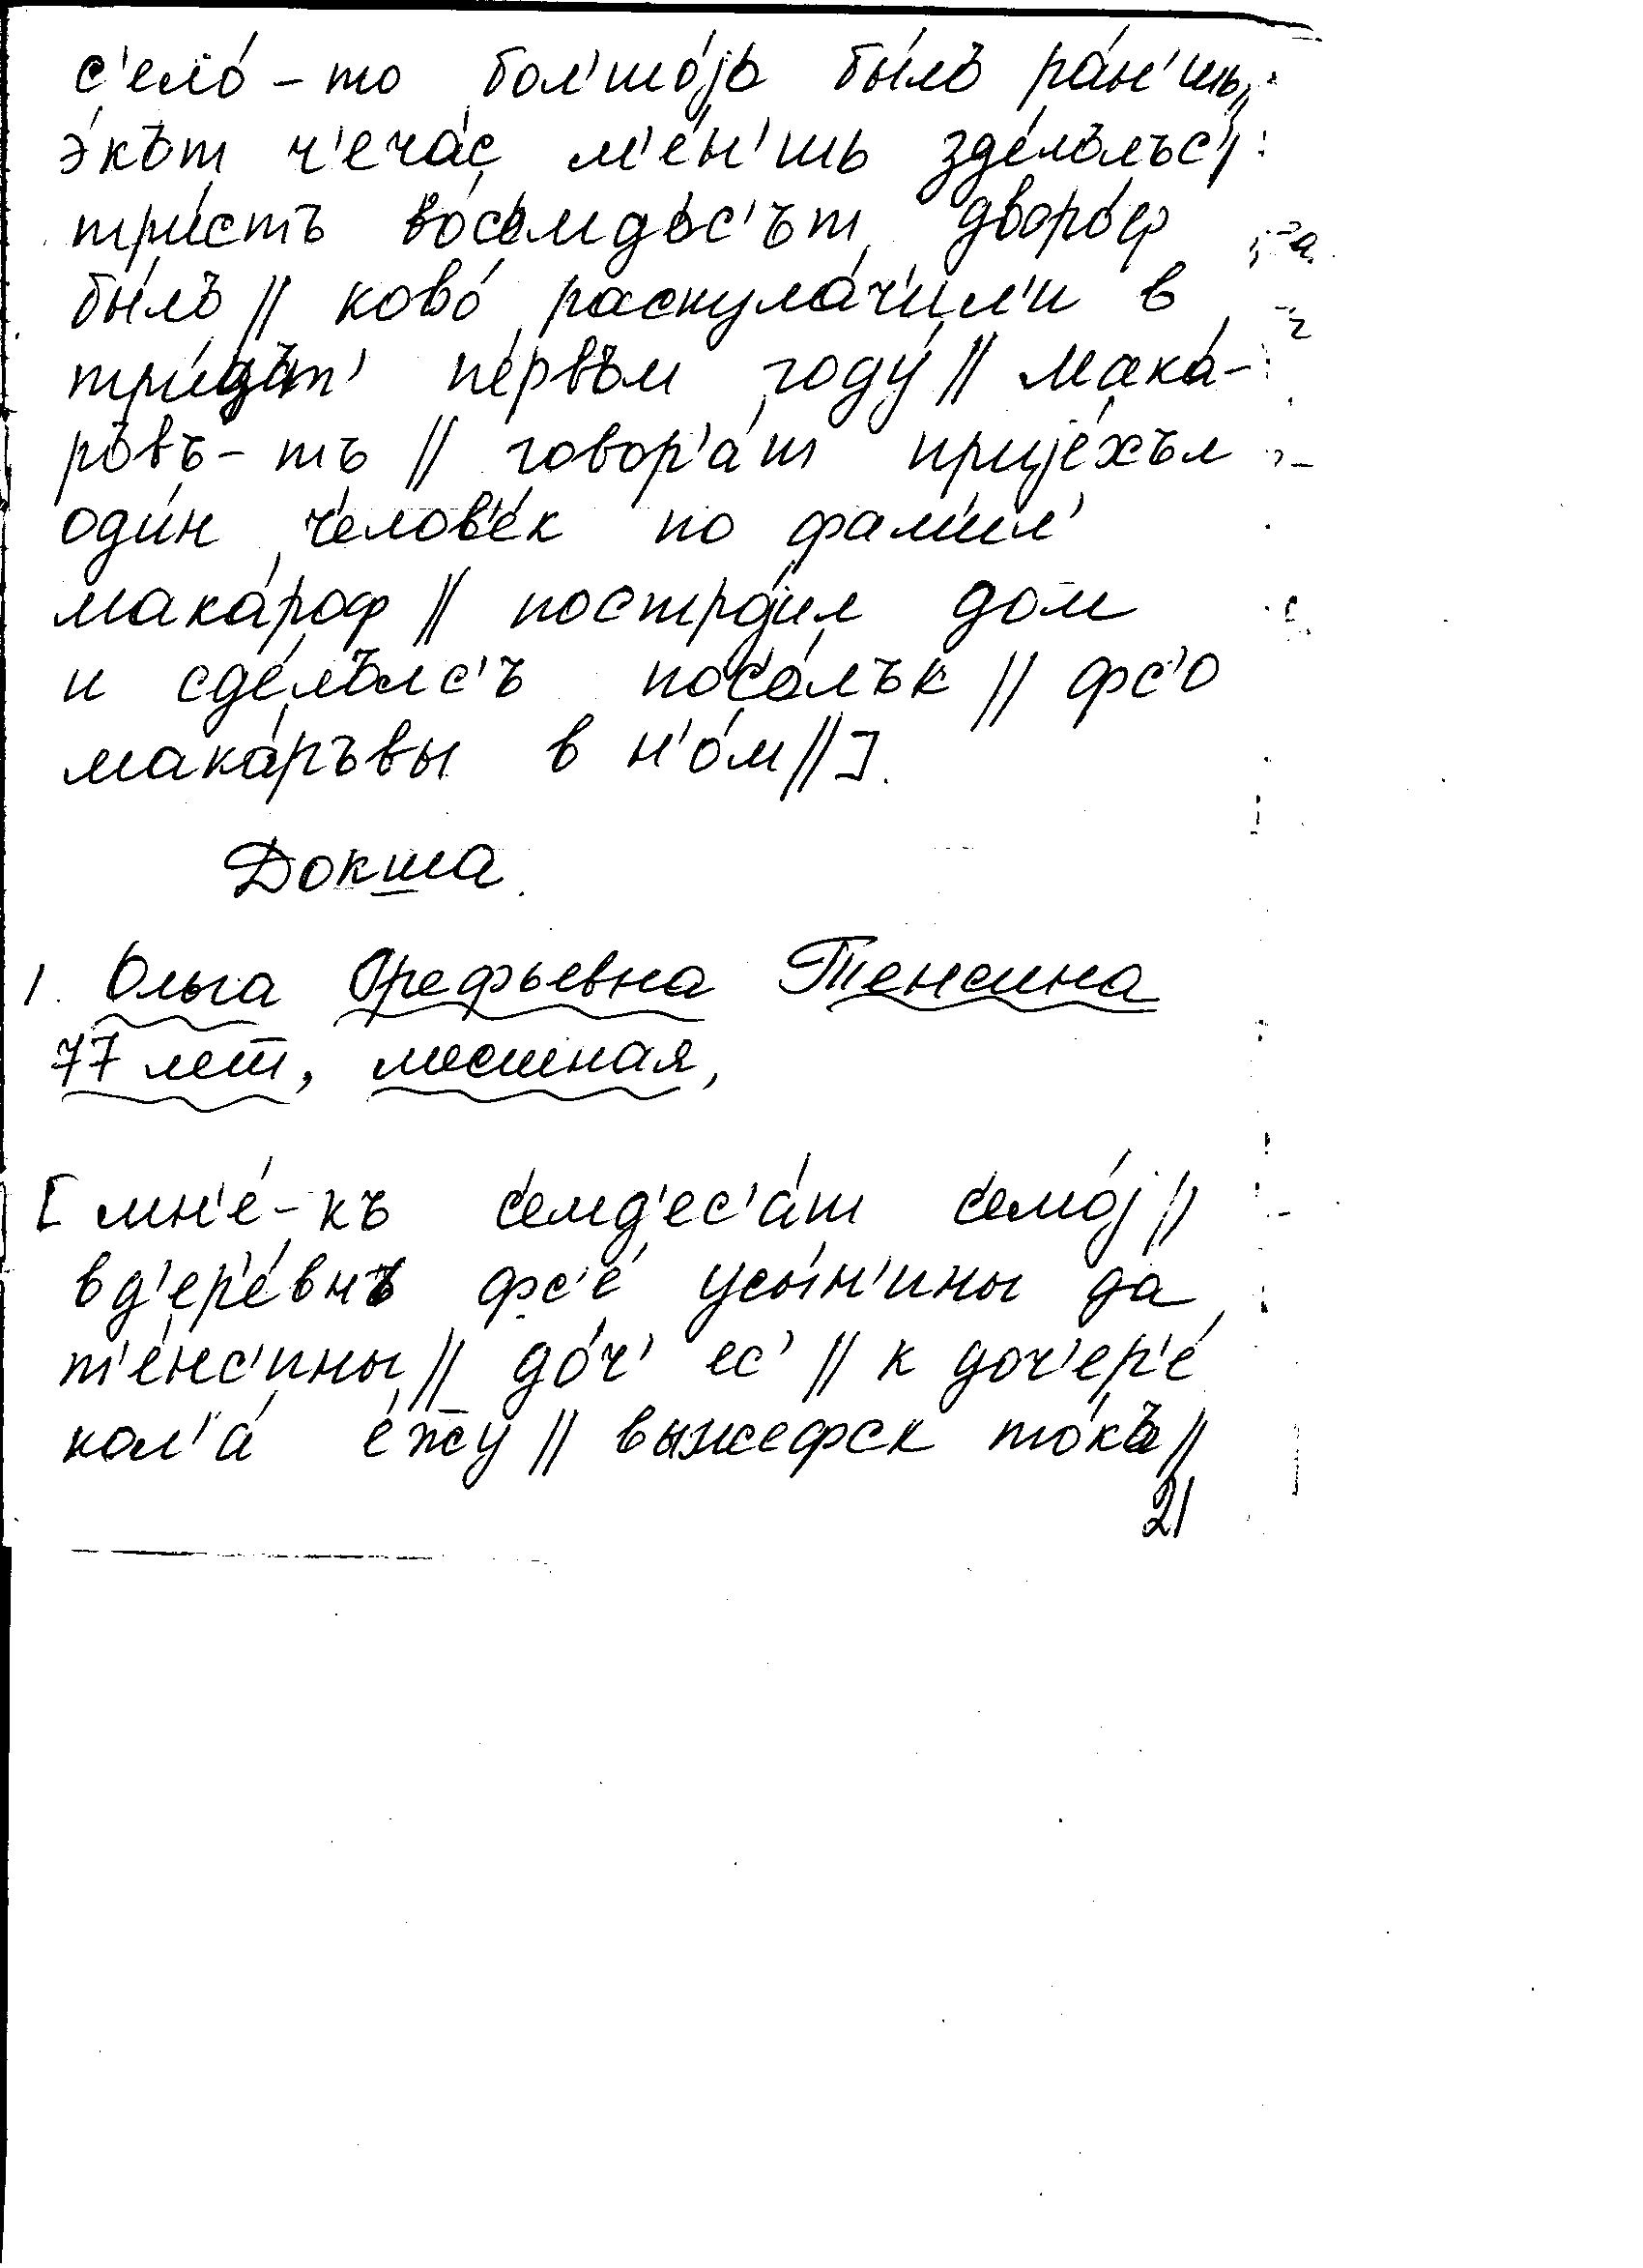 с'ело́-то бол'шо́јь бы́лъ ра́н'шь//
э́кът ч'еча́с м'е́н'шь зде́лълъс'//
три́стъ во́сьмдьс'ът дворо́ф
бы́лъ // ково́ раскула́ч'ил'и в
три́дът' пе́рвъм году́ // мака́-
ръвъ-тъ // говор'а́т прије́хъл
оди́н ч'елов'е́к по фами́л'
мака́роф // постро́јил дом
и сде́лълс'ъ пос'о́лък // фс'о
мака́ръвы в н'о́м//].
Докша.
1. Ольга Орефьевна Тенсина
77 лет, местная,
[мн'е́-къ с'емд'ес'а́т с'емо́ј//
вд'ер'е́внъ фс'е́ усы́н'ины да
т'е́нс'ины // до́ч' ес' // к доч'ер'е́
кол'а́ е́жжу // выжефск то́къ//
21